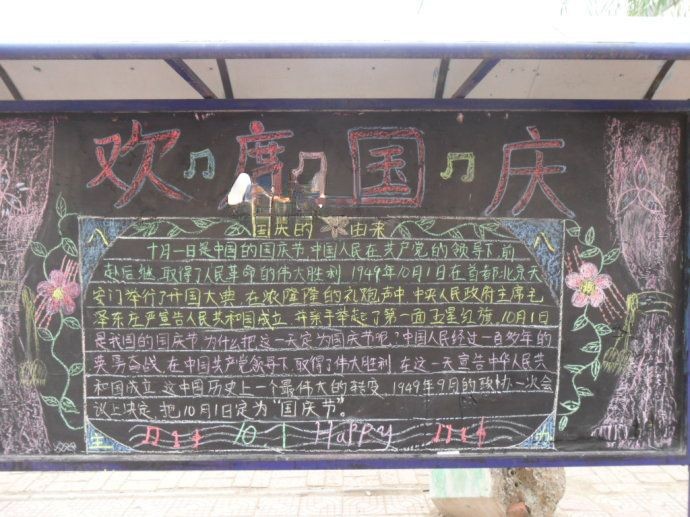 欢度国庆
国庆的由来
十月一日是中国的国庆节中国人民在共产党的领导下,前
赴后继,取得了人民革命的伟大胜利,1949年10月1日在首都北京天
安门举行了开国大典,在浓隆隆的礼炮声中,中央人民政府主席毛
泽东庄严宣告人民共和国成立,并亲手举起了第一面五星红旗,10月1日
是我国的国庆节,为什么把这一天定为国庆节呢?中国人民经过一百多年的
英勇奋战,在中国共产党领导下,取得了伟大胜利,在这一天宣告中华人民共
和国成立,这中国历史上一个最伟大的转变,1949年9月的政协一次会
议上决定,把10月1日定为"国庆节"。
10 1 Happy